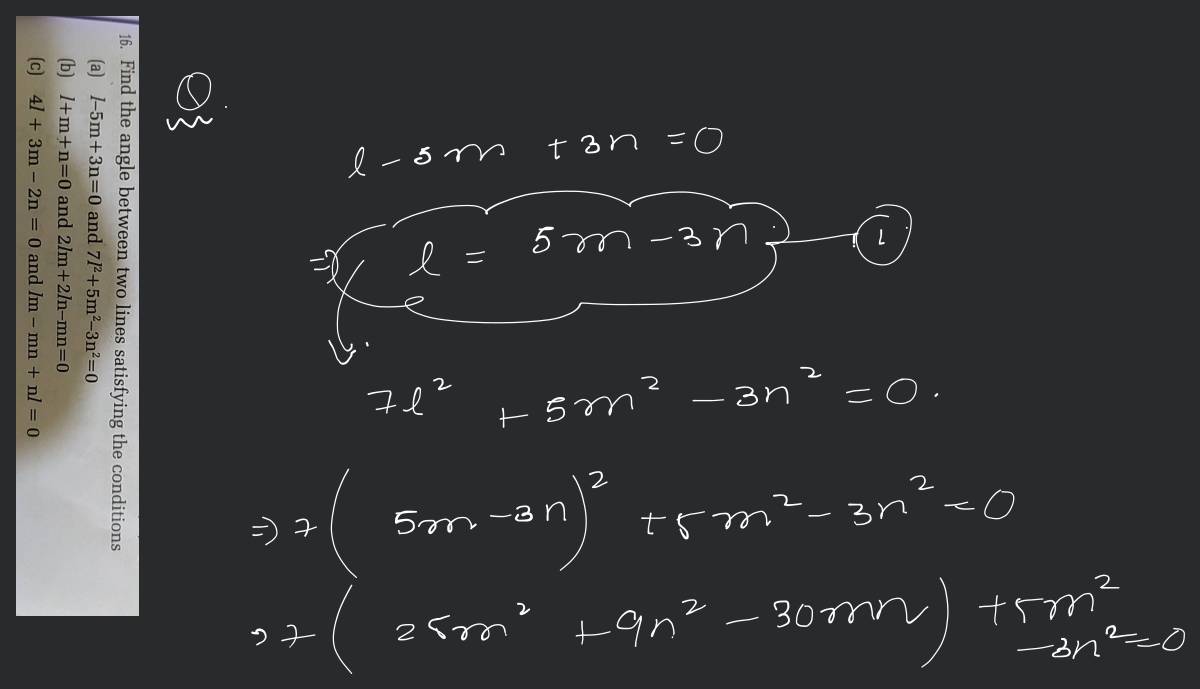 16. Find the angle between two lines satisfying the conditions
(a) l–5m+3n=0 and 7l²+5m²–3n²=0
(b) l+m+n=0 and 2lm+2ln–mn=0
(c) 4l + 3m – 2n = 0 and lm – mn + nl = 0
Q.
l - 5m + 3n = 0
⇒ l = 5m - 3n 1
7l² + 5m² - 3n² = 0.
⇒ 7(5m - 3n)² + 5m² - 3n² = 0
⇒ 7(25m² + 9n² - 30mn) + 5m²
- 3n² = 0